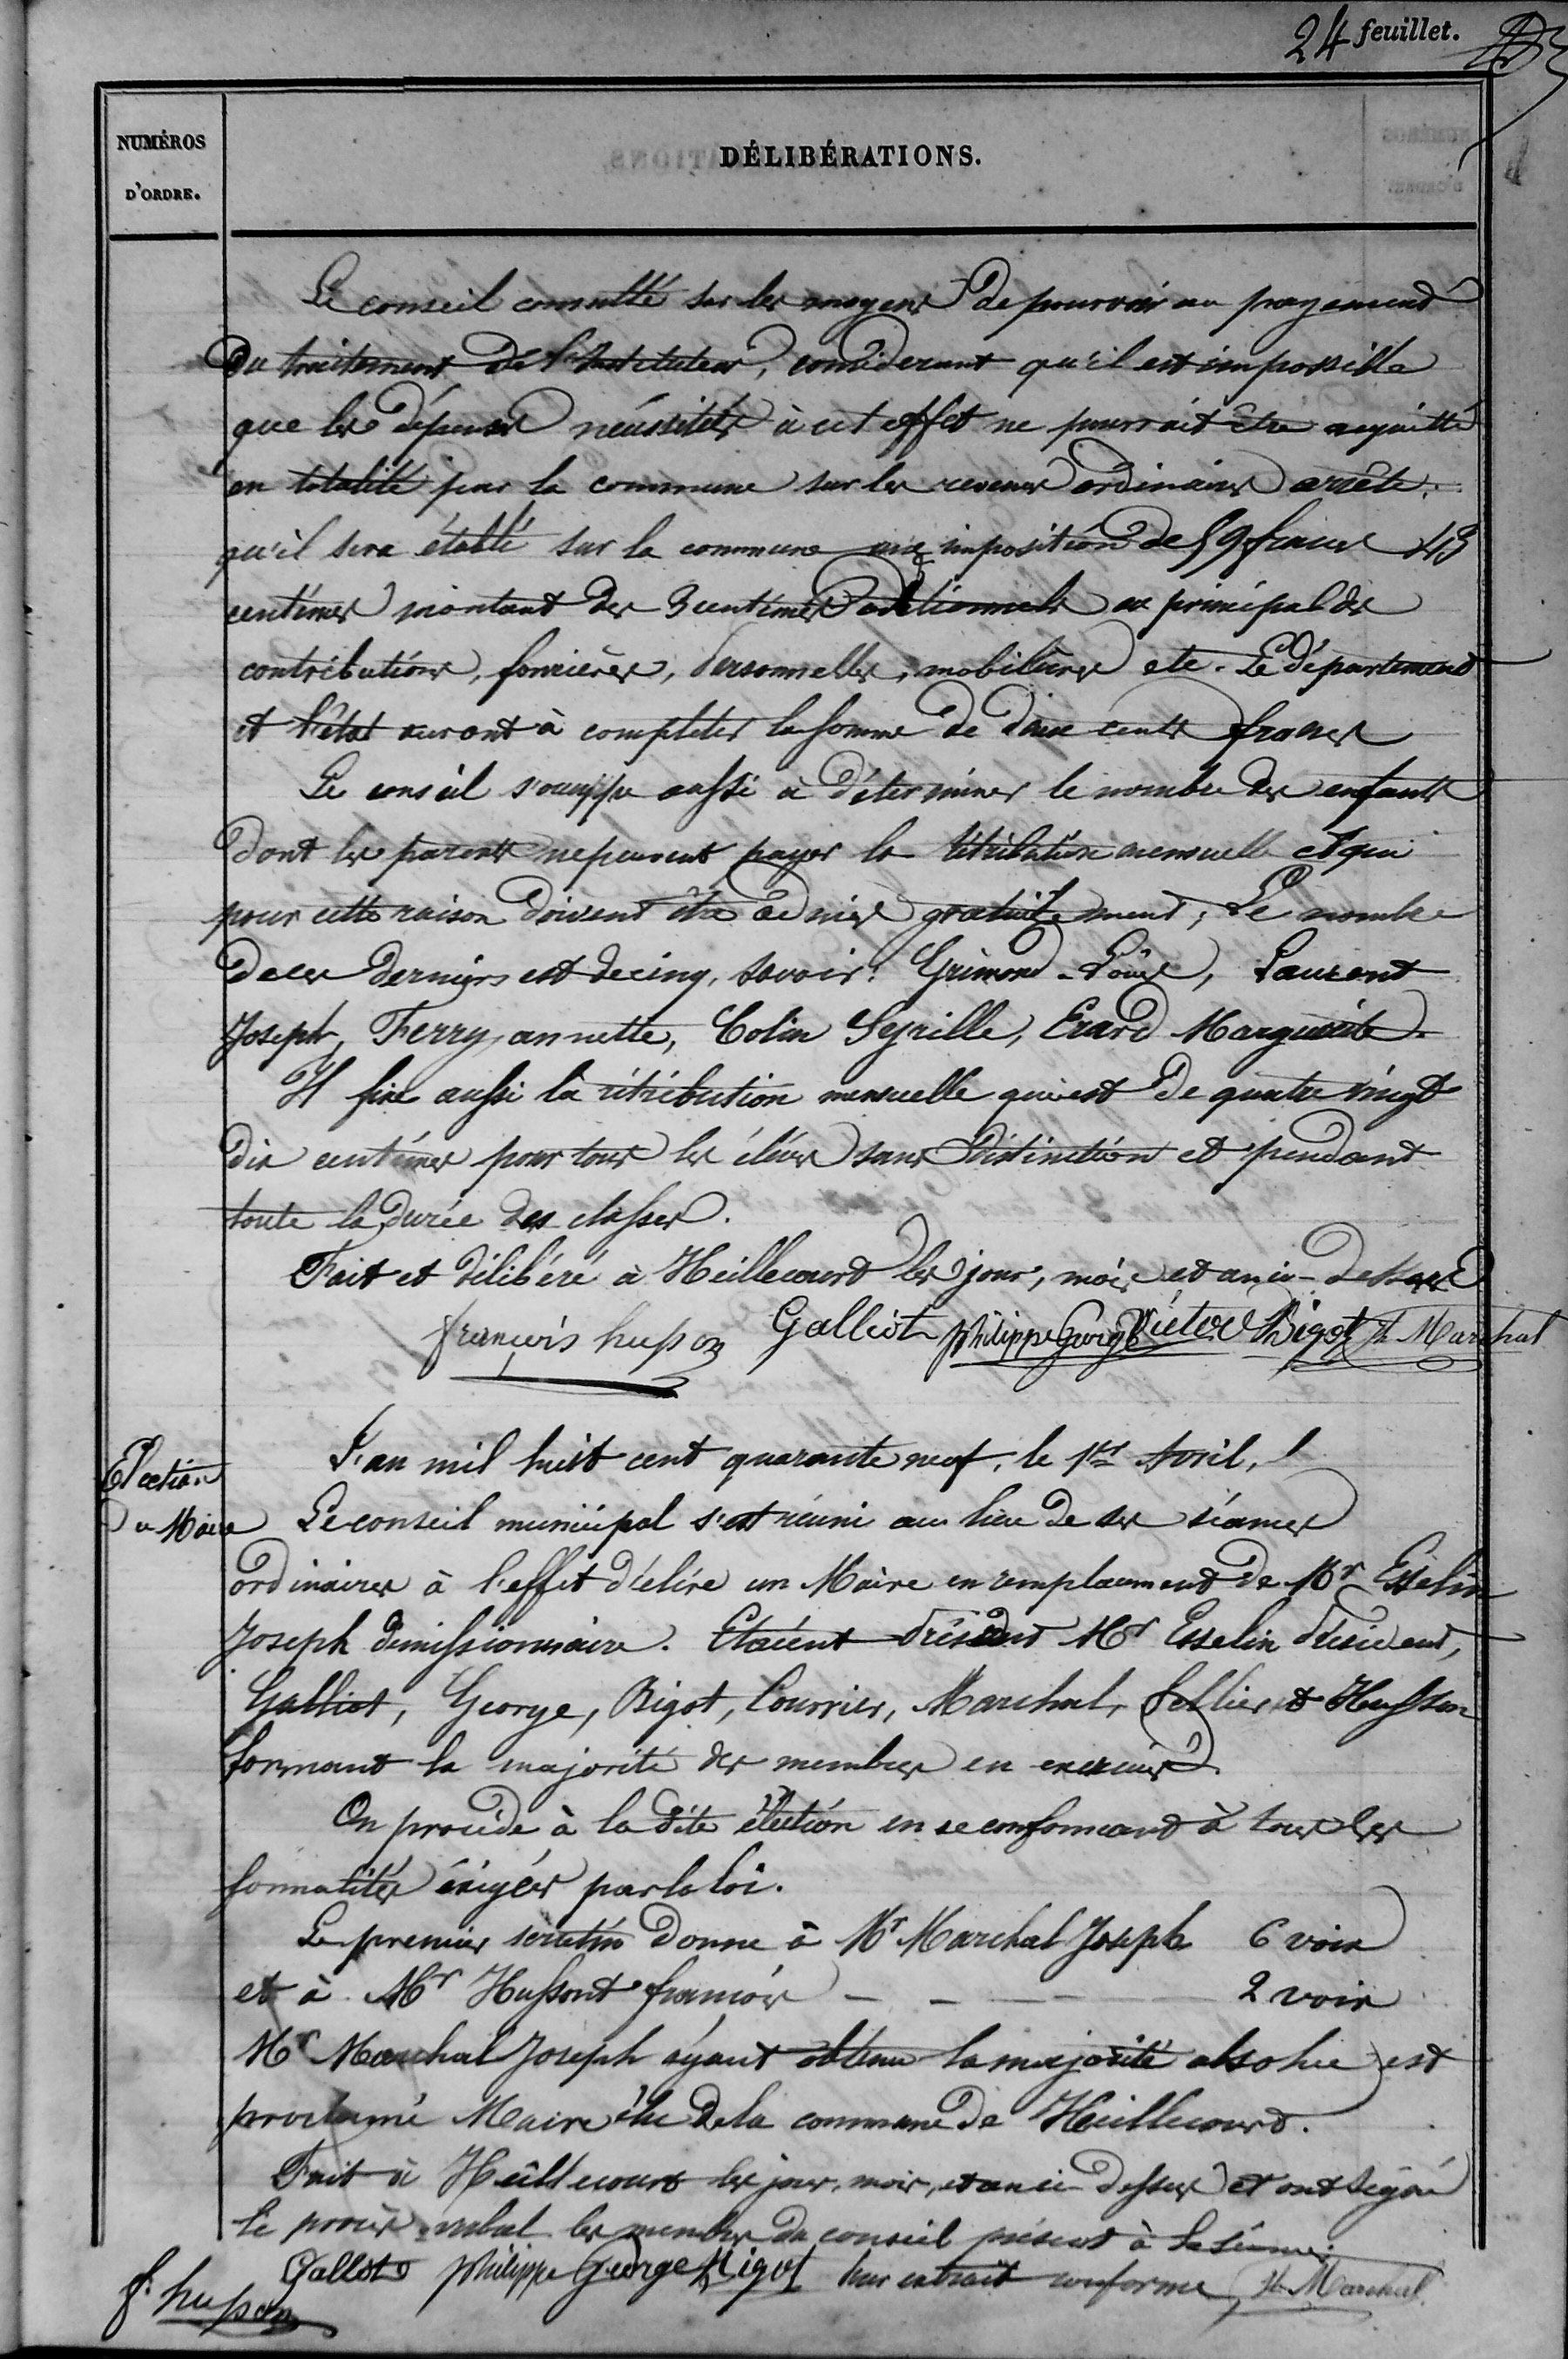 24 feuillet.
NUMÉROS
D'ORDRE.
DÉLIBÉRATIONS.
Le conseil consulté sur les moyens de pourvoir au payement
du traitement de l'Instituteur, considerant qu'il est impossible
que les dépenses nécessités à cet effet ne pourrait être acquitté
en totalité par la commune sur les revenus ordinaires arrête.
qu'il sera établi sur la commune une imposition de 59 francs 43
centimes montant des 3 centimes additionnels au principal des
contributions, foncières, personnelles, mobilières etc. Le département
et l'état auront à completer la somme de deux cents francs
Le conseil s'occuppe aussi à déterminer le nombre des enfants
dont les parents ne peuvent payer la rétribution mensuelle et qui
pour cette raison doivent être admis gratuitement; Le nombre
de ces derniers est de cinq, savoir: Grimond Louis, Laurent
Joseph, Ferry annette, Colin Seyrille, Erard Marguerite.
Il fixe aussi la rétribution mensuelle qui est de quatre vingt
dix centimes pour tous les élèves sans distinction et pendant
toute la durée des classes.
Fait et délibéré à Heillecourt les jour, mois et an ci-dessus
françois husson Galliot philippe George Victor Bigot Jh Marchal
Election
du Maire
L'an mil huit cent quarante neuf, le 1er Avril,
Le conseil municipal s'est réuni au lieu de ses séances
ordinaires à l'effet d'élire un Maire en remplacement de Mr Esselin
Joseph démissionnaire. Etaient présents Mr Esselin Président,
Galliot, George, Bigot, Courrier, Marchal, Sellier et Husson
formant la majorité des membres en exercice.
On procède à la dite élection en se conformant à tous les
formalités éxigées par la loi.
Le premier scrutin donne à Mr Marchal Joseph 6 voix
et à Mr Hussont françois - - - - 2 voix
Mr Marchal Joseph ayant obtenu la majorité absolue est
proclamé Maire élu de la commune de Heillecourt.
Fait à Heillecourt les jour, mois, et an ci-dessus et ont signé
le procès-verbal les membres du conseil présents à la séance.
Galliot philippe George Bigot Pour extrait conforme Jh Marchal
f. husson